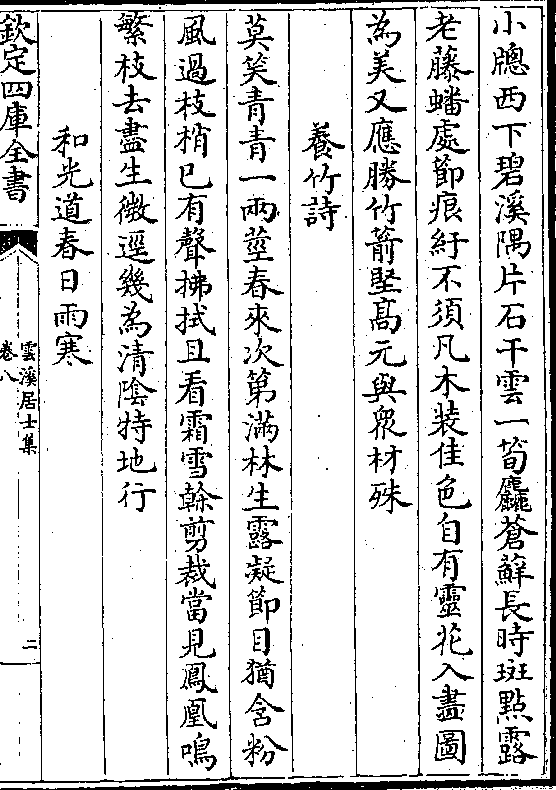 小牕西下碧溪隅片石干雲一筍麤蒼蘚長時斑點露
老藤蟠處節痕紆不須凡木装佳色自有靈花入畫圖
為美又應勝竹箭堅髙元與衆材殊
養竹詩
莫笑青青一兩莖春來次第滿林生露凝節目猶含粉
風過枝梢已有聲拂拭且看霜雪榦剪裁當見鳳凰鳴
繁枝去盡生微逕幾為清陰特地行
和光道春日雨寒
欽定四庫全書
雲溪居士集
卷八
二